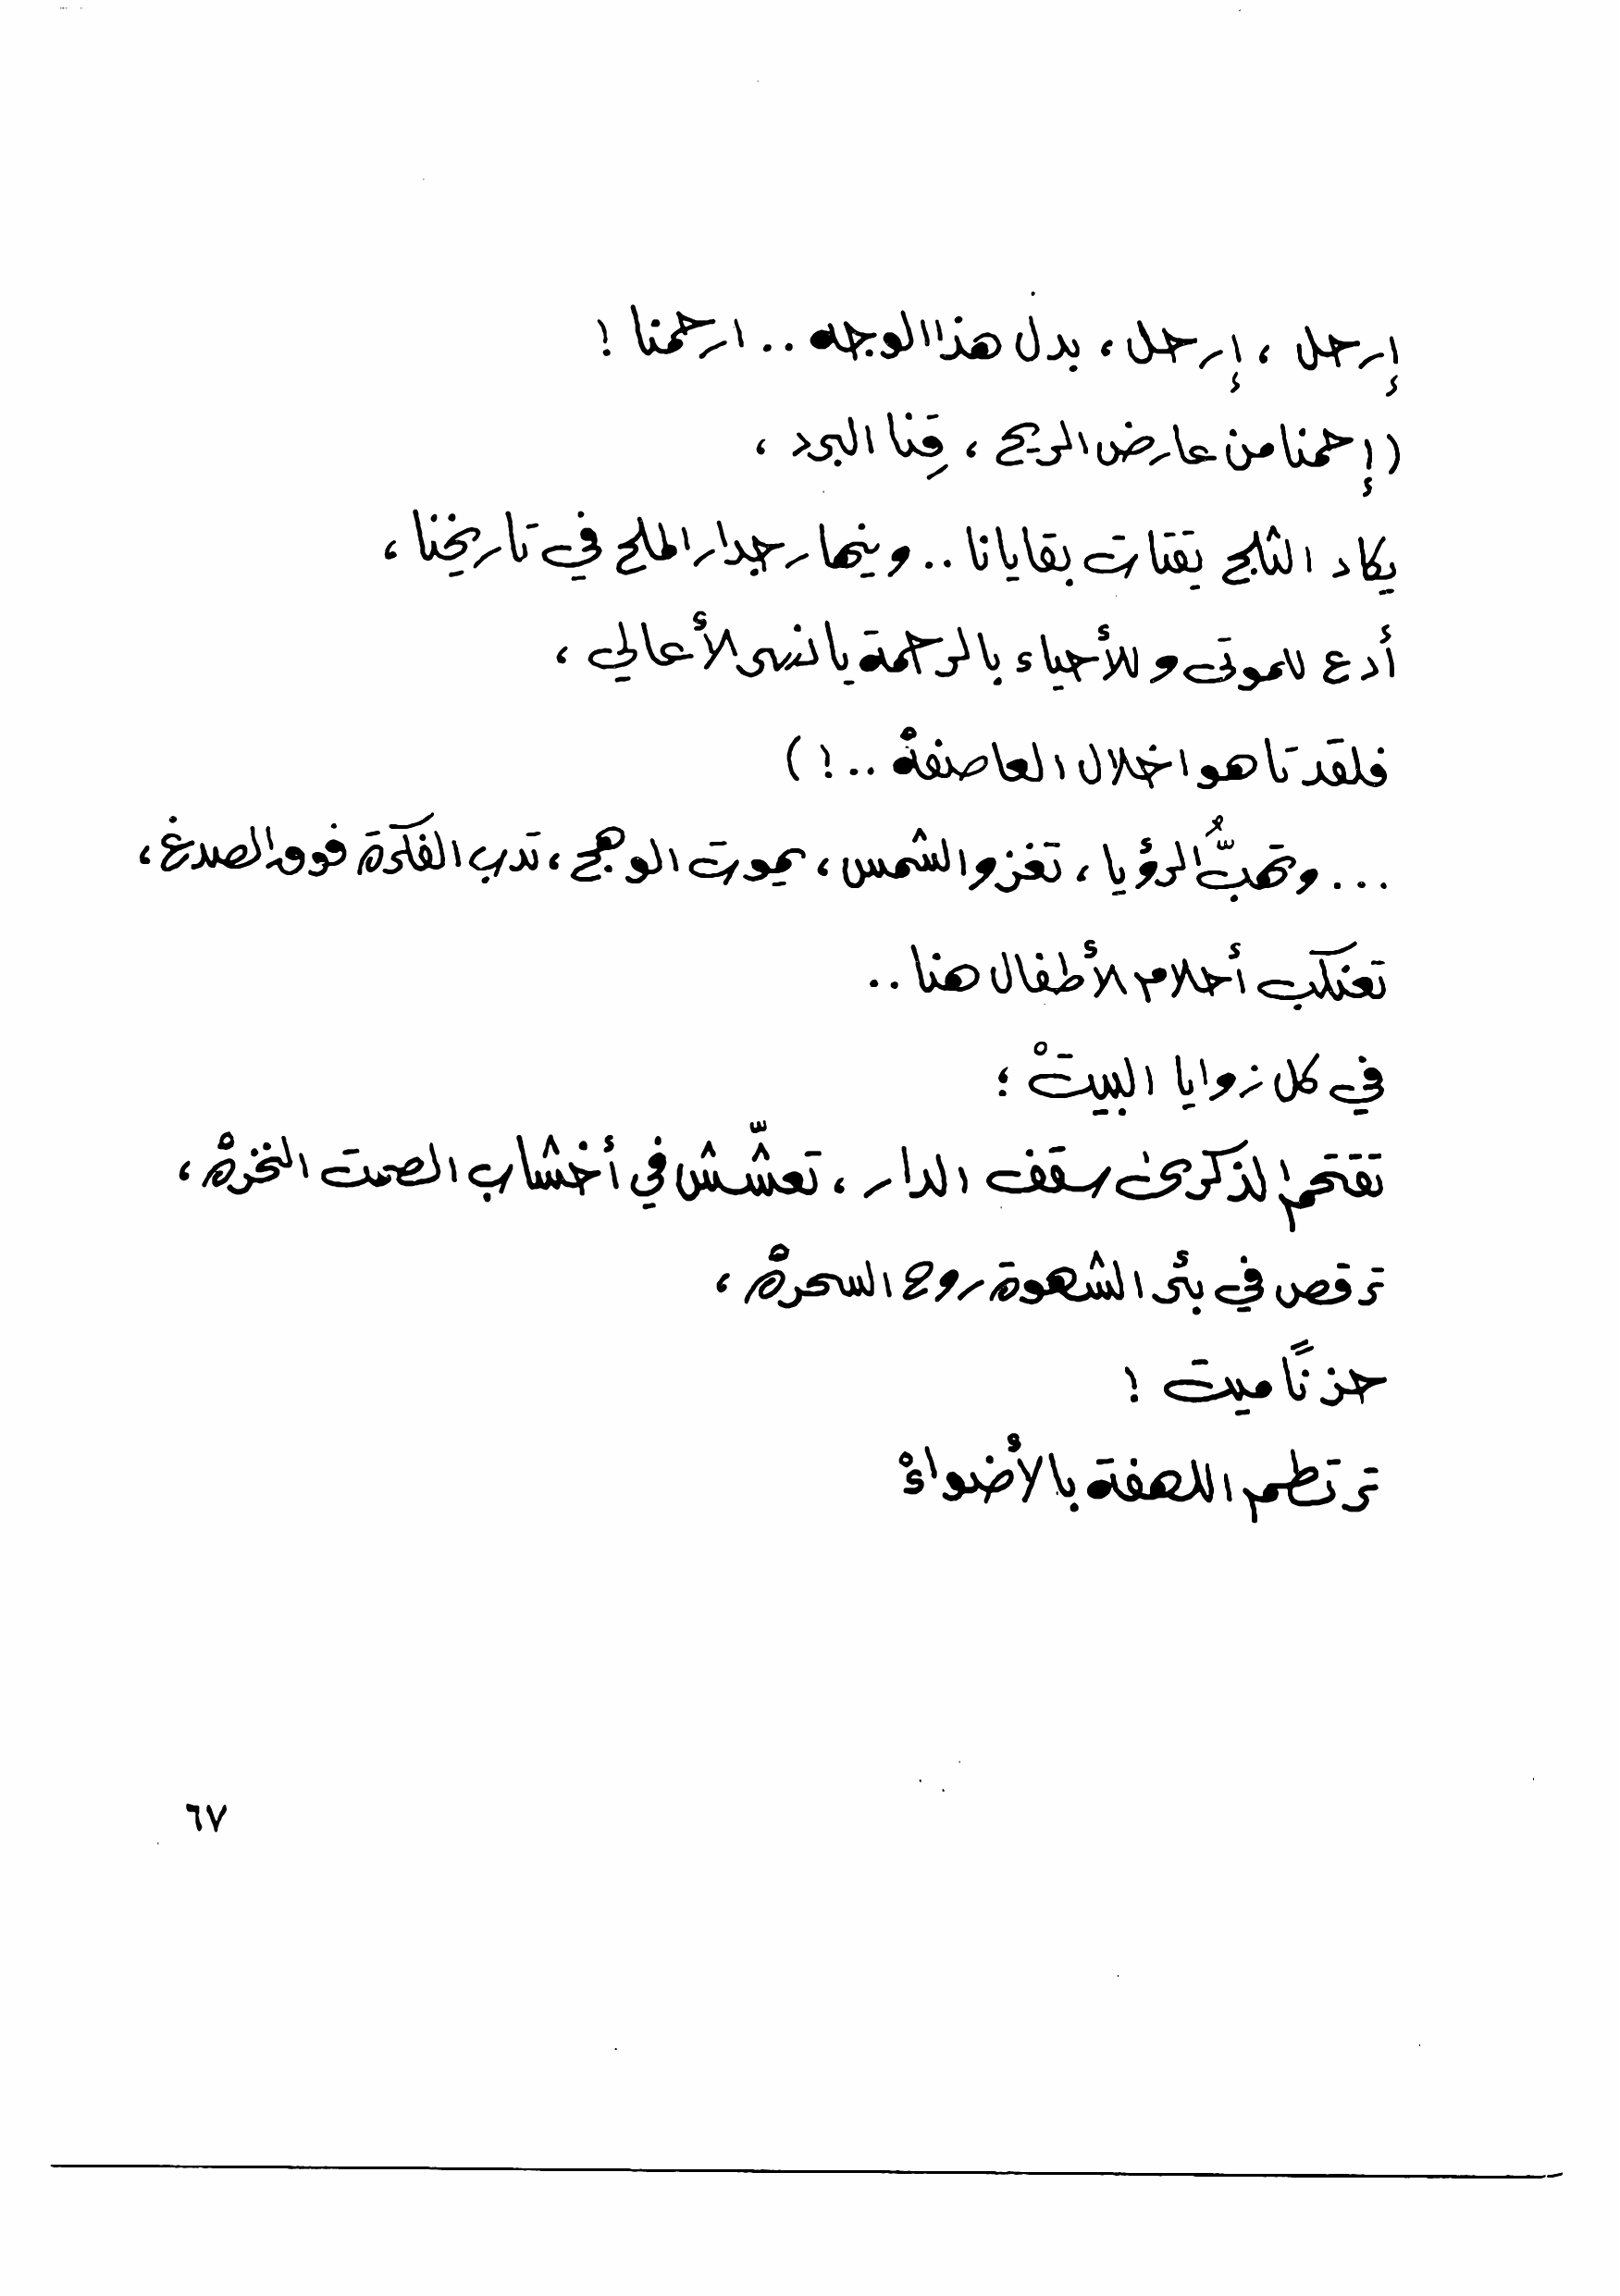 إرحل ، إرحل ، بدل هذا الوجه .. ارحمنا !
( إحمنا من عارض الريح ، قِنا البرد ،
يكاد الثلج يقتات بقايانا .. وينهار جدار الملح في تاريخنا ،
أدع للموتى وللأحياء بالرحمة يا نسر الأعالي ،
فلقد تاهوا خلال العاصفةْ .. ! )
... وتهبُّ الرؤيا ، تغزو الشمس ، يموت الوهج ، تدب الفكرة فوق الصدغ ،
تعنكب أحلام الأطفال هنا ..
في كل زوايا البيتْ ؛
تقتحم الذكرى سقف الدار ، تعشّش في أخشاب الصمت النخرةْ ،
ترقص في بئر الشهوة روح السحرةْ ،
حزناً ميت !
ترتطم اللهفة بالأضواءْ
٦٧